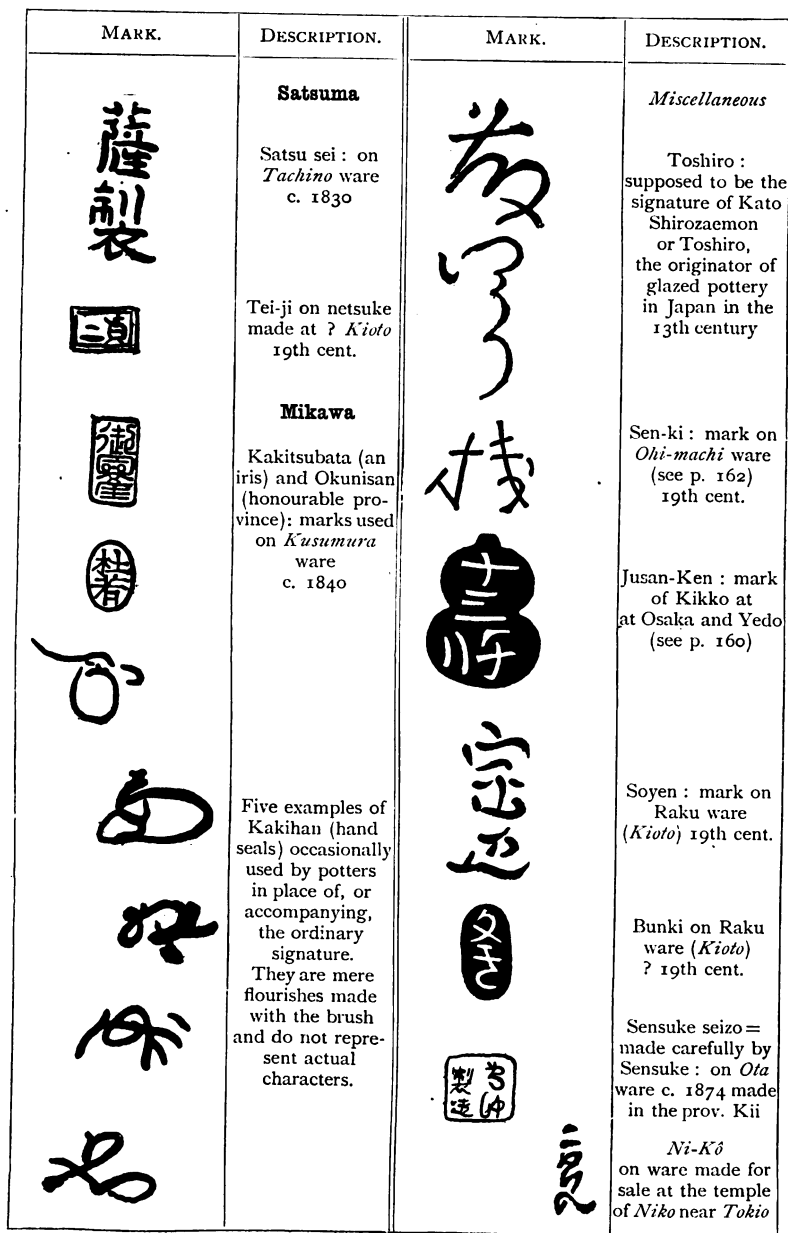 MARK.
DESCRIPTION.
薩
製
Satsuma
Satsu sei : on
Tachino ware
c. 1830
貞二
Tei-ji on netsuke
made at ? Kioto
19th cent.
Mikawa
杜若
Kakitsubata (an
iris) and Okunisan
(honourable pro-
vince): marks used
on Kusumura
ware
c. 1840
Five examples of
Kakihan (hand
seals) occasionally
used by potters
in place of, or
accompanying,
the ordinary
signature.
They are mere
flourishes made
with the brush
and do not repre-
sent actual
characters.
MARK.
DESCRIPTION.
Miscellaneous
Toshiro :
supposed to be the
signature of Kato
Shirozaemon
or Toshiro,
the originator of
glazed pottery
in Japan in the
13th century
Sen-ki : mark on
Ohi-machi ware
(see p. 162)
19th cent.
十
三
軒
Jusan-Ken : mark
of Kikko at
at Osaka and Yedo
(see p. 160)
Soyen : mark on
Raku ware
(Kioto) 19th cent.
Bunki on Raku
ware (Kioto)
? 19th cent.
製造
Sensuke seizo =
made carefully by
Sensuke : on Ota
ware c. 1874 made
in the prov. Kii
Ni-Kô
on ware made for
sale at the temple
of Niko near Tokio